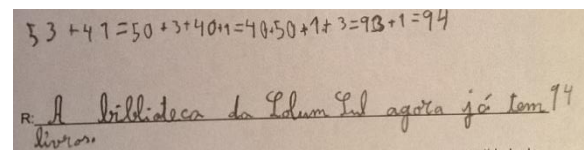 53+41=50+3+40+1=40+50+1+3=93+1=94
R: A biblioteca da Lolum Lul agora já tem 94
livros.